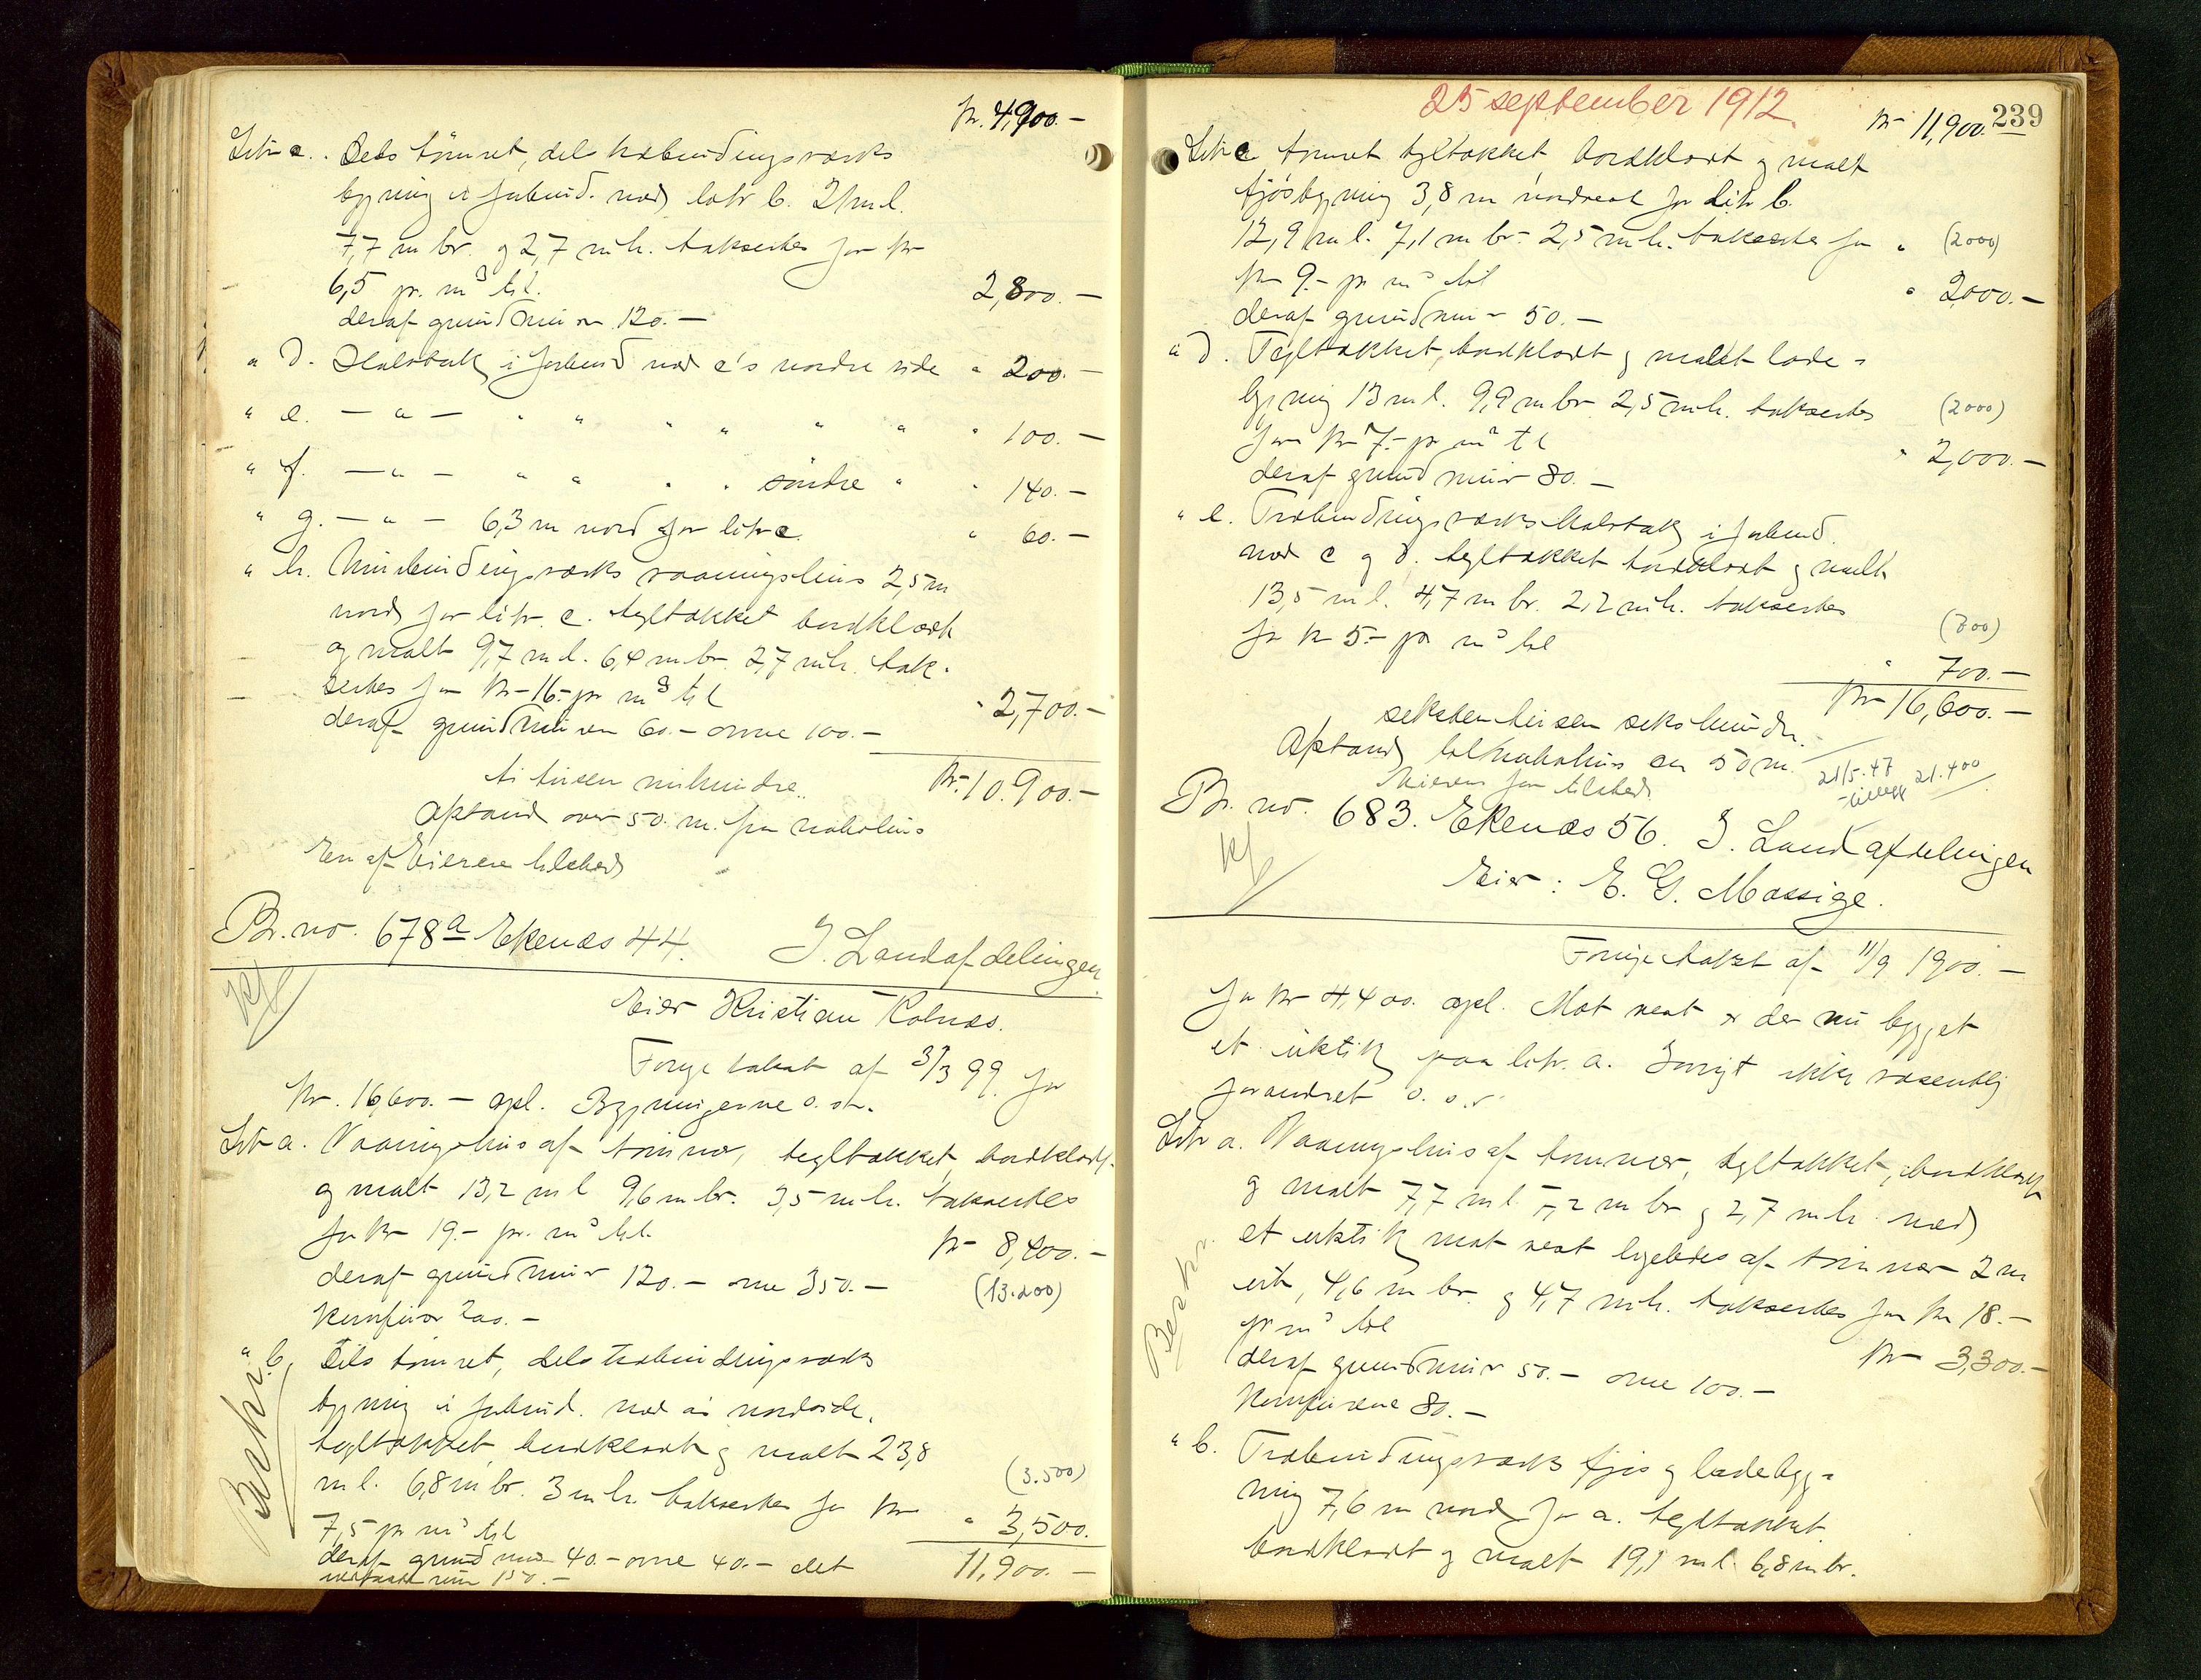 kr. 4,900.-
Litr c. Dels tömret, dels træbindingsværks
bygning i forbind. med litr b. 21 m l.
7,7 m br. og 2,7 m h. takseredes for kr
6,5 pr. m³ til
2,800.-
deraf grundmur 120.-
" d. Halvtak i forbind med c's nordre side " 200.-
" e. - " - " " " " " " " 100.-
" f. - " - " " " " söndre " " 140.-
" g. - " - 6,3 m nord for litr c. " 60.-
" h. Murbindingsværks vaaningshus 2,5 m
nord for litr. c. tegltækket bordklædt
og malt 9,7 m l. 6,4 m br. 2,7 m h. tak-
seredes for kr 16.- pr m³ til
" 2,700.-
deraf grundmuren 60.- ovne 100.-
kr. 10.900.-
ti tusen nihundre.
Afstand over 50 m. fra nabohus
En af Eierne tilstede
Br. no. 678a Ekenæs 44. I. Landafdelingen.
Eier Kristian Kolnæs.
Forige takst af 3/3 99 for
kr. 16,600.- opl. Bygningerne o. s.v.
Litr a. Vaaningshus af tömmer, tegltækket, bordklædt
og malt 13,2 m l 9,6 m br. 3,5 m h. takseredes
for kr 19.- pr. m³ til
kr 8,400.-
deraf grundmur 120.- ovne 350.-
(13.200)
Komfur 200.-
" b. Dels tömret, dels træbindingsværks
bygning i forbind. med a's nordside,
tegltækket, bordklædt og malt 23,8
(3.500)
m l. 6,8 m br. 3 m h. takseredes for kr
7,5 pr m³ til
" 3,500.
deraf grundmur 40.- ovne 40.- det
11,900.-
mur 150.-
25 september 1912.
239
kr 11,900.-
Litr c tömret tegltækket, bordklædt og malt
fjösbygning 3,8 m nordvest for litr b.
12,9 m l. 7,1 m br. 2,5 m h. takseredes for
(2000)
kr 9.- pr m³ til
" 2,000.-
deraf grundmur 50.-
" d. Tegltækket, bordklædt og malt lade-
bygning 13 m l. 9,9 m br 2,5 m h. takseredes
(2000)
for kr 7.- pr m³ til
" 2,000.-
deraf grundmur 80.-
" e. Træbindingsværks halvtak i forbind.
med c og d. tegltækket bordklædt og malt
13,5 m l. 4,7 m br. 2,2 m h. takseredes
(700)
for kr 5.- pr m³ til
" 700.-
kr 16,600.-
seksten tusen sekshundre.
Afstand til nabohus ca 50 m.
21/5.47 21.400
Eieren var tilstede
Br. no. 683. Ekenæs 56. I. Landafdelingen
Eier: E. G. Massige.
Forige takst af 11/9 1900.-
for kr 4,400. opl. Mot vest er der nu bygget
et utstik paa litr. a. Forøvrigt ikke væsentlig
forandret o. s.v.
Litr a. Vaaningshus af tömmer, tegltækket, bordklædt
og malt 7,7 m l 7,2 m br og 2,7 m h. med
et utstik mot vest ligeledes af tömmer 2 m
ut, 4,6 m br. og 4,7 m h. takseredes for kr 18.-
pr m³ til
kr 3,300.-
deraf grundmur 50.- ovne 100.-
Komfurene 80.-
" b. Træbindingsværks fjös og ladebyg-
ning 7,6 m nord for a. tegltækket
bordklædt og malt 19,1 m l. 6,8 m br.